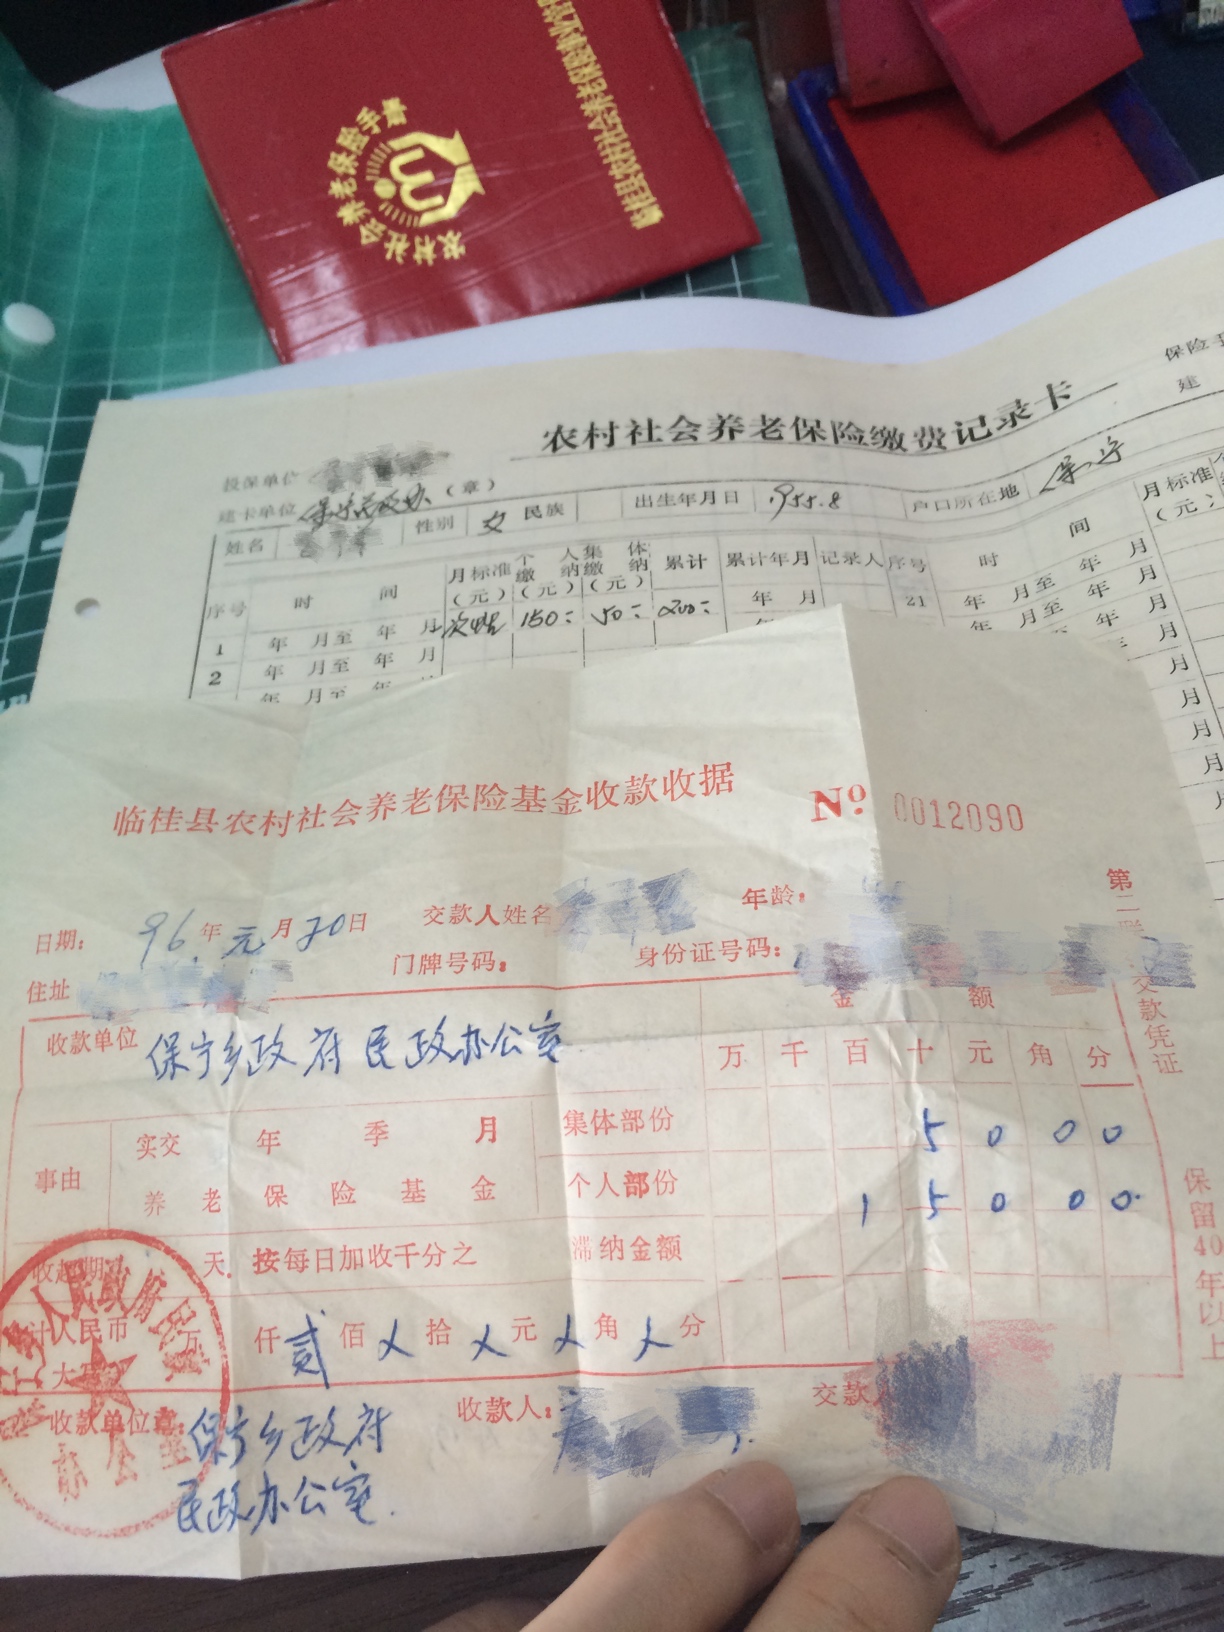 农村社会养老保险手册
临桂县农村社会养老保险事业管
农村社会养老保险缴费记录卡
保险手
建
投保单位
建卡单位 保宁民政办 (章)
姓名 性别 女 民族 出生年月日 1955.8 户口所在地 保宁
序号 时间 月标准(元) 个人缴纳(元) 集体缴纳(元) 累计 累计年月 记录人 序号 时间 月标准(元)
1 年 月至 年 月 次性 150 50 200 年 月 21 年 月至 年 月
2 年 月至 年 月 年 月至 年 月
年 月至 年
临桂县农村社会养老保险基金收款收据 No 0012090
日期: 96年元月20日 交款人姓名 年龄:
住址 门牌号码: 身份证号码:
第二联 交款凭证 保留40年以上
收款单位 保宁乡政府民政办公室 金额
万 千 百 十 元 角 分
事由 实交 年 季 月 集体部份 5 0 0 0
养老保险基金 个人部份 1 5 0 0 0
收起期 天. 按每日加收千分之 滞纳金额
计人民币 万 仟 贰 佰 乂 拾 乂 元 乂 角 乂 分
收款单位章: 保宁乡政府 收款人: 交款人
民政办公室.